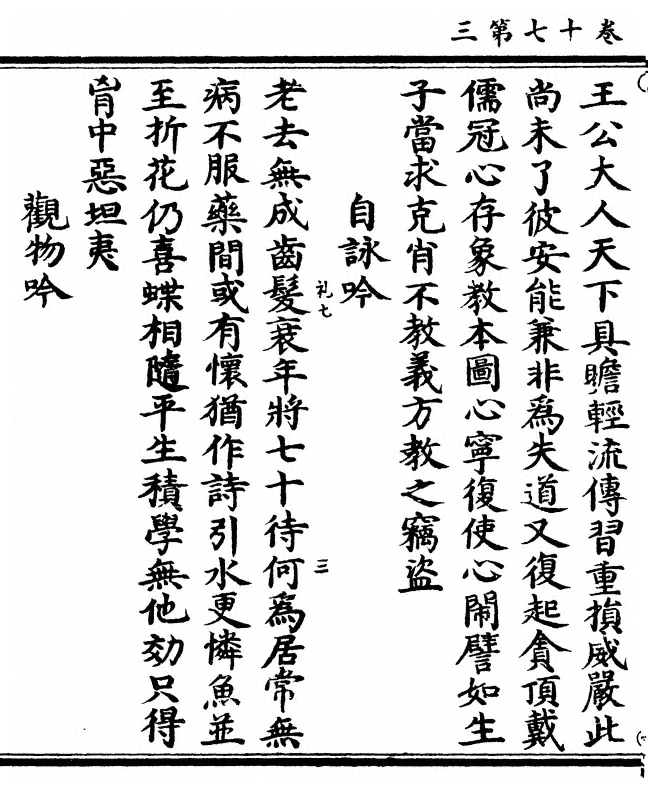 卷十七第三
王公大人天下具瞻輕流傳習重損威嚴此
尚未了彼安能兼非為失道又復起貪頂戴
儒冠心存象教本圖心寧復使心鬧譬如生
子當求克肖不教義方教之竊盜
自詠吟
老去無成齒髮衰年將七十待何為居常無
病不服藥間或有懷猶作詩引水更憐魚並
至折花仍喜蝶相隨平生積學無他効只得
胷中惡坦夷
觀物吟
礼七
三